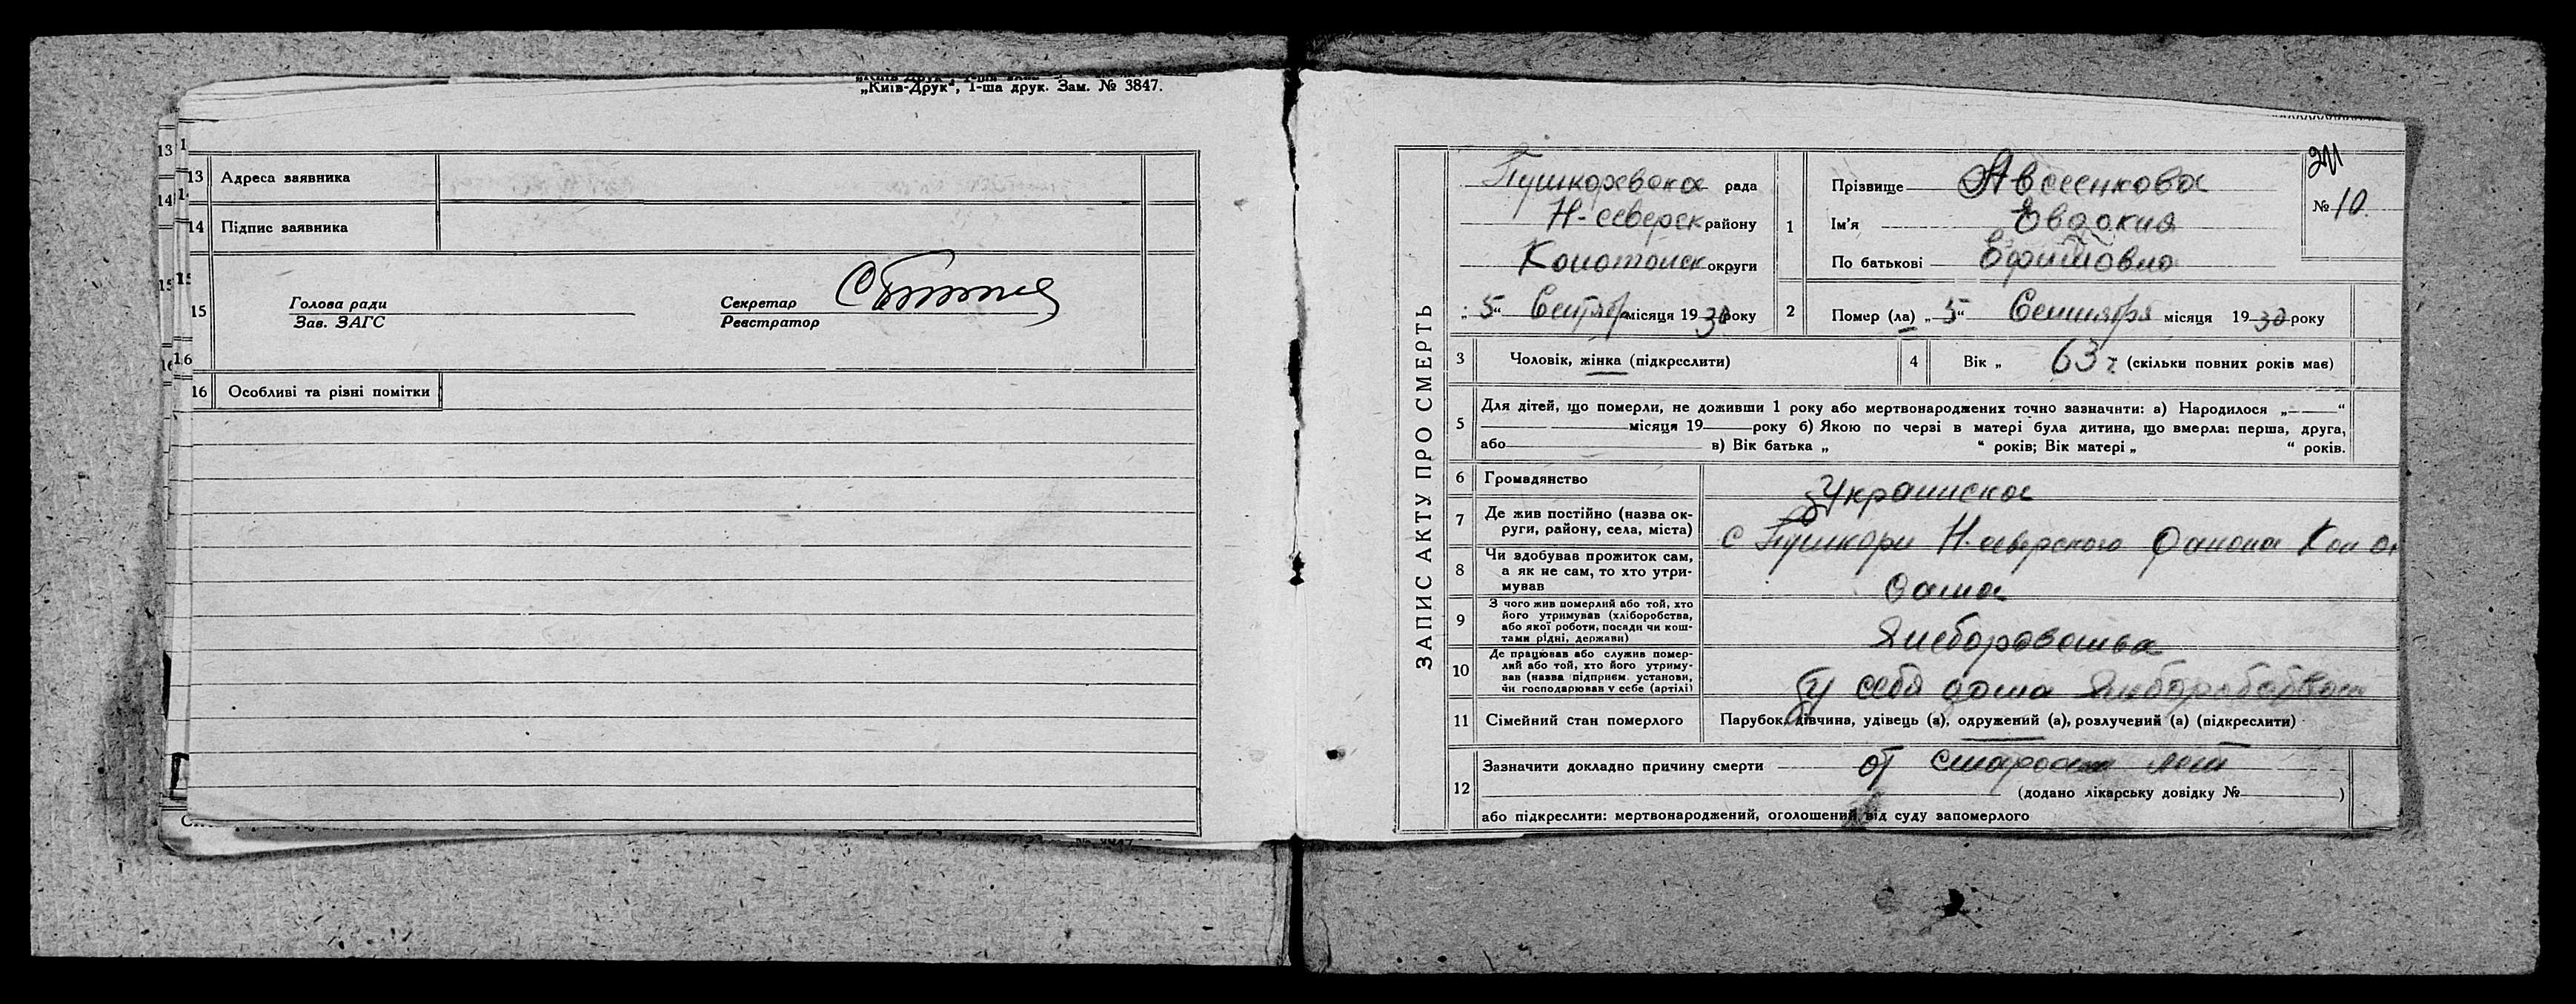 „Київ-Друк“, 1-ша друк. Зам. № 3847.
13 Адреса заявника
14 Підпис заявника
15 Голова ради
Зав. ЗАГС
Секретар
Реєстратор
16 Особливі та різні помітки
ЗАПИС АКТУ ПРО СМЕРТЬ
Пушкаревская рада
Н-северск району
Конотопск округи
„5“ Сентябр місяця 1930 року
1 Прізвище Авсеенкова
Ім'я Евдокия
По батькові
211
№ 10.
2 Помер (ла) „5“ Сентября місяця 1930 року
3 Чоловік, жінка (підкреслити)
4 Вік „ 63 г. (скільки повних років має)
5 Для дітей, що померли, не доживши 1 року або мертвонароджених точно зазначити: а) Народилося „ “
місяця 19 року б) Якою по черзі в матері була дитина, що вмерла: перша, друга,
або в) Вік батька „ “ років; Вік матері „ “ років.
6 Громадянство Украинская
7 Де жив постійно (назва ок-
руги, району, села, міста) с Пушкари Н-северского района Кон
8 Чи здобував прожиток сам,
а як не сам, то хто утри-
мував сама
9 З чого жив померлий або той, хто
його утримував (хліборобства,
або якої роботи, посади чи кош-
тами рідні, держави)
10 Де працював або служив помер-
лий або той, хто його утриму-
вав (назва підприєм. установи,
чи господарював у себе (артілі) у себя дома
11 Сімейний стан померлого Парубок, дівчина, удівець (а), одружений (а), розлучений (а) (підкреслити)
12 Зазначити докладно причину смерти от старости лет
(додано лікарську довідку № )
або підкреслити: мертвонароджений, оголошений від суду запомерлого